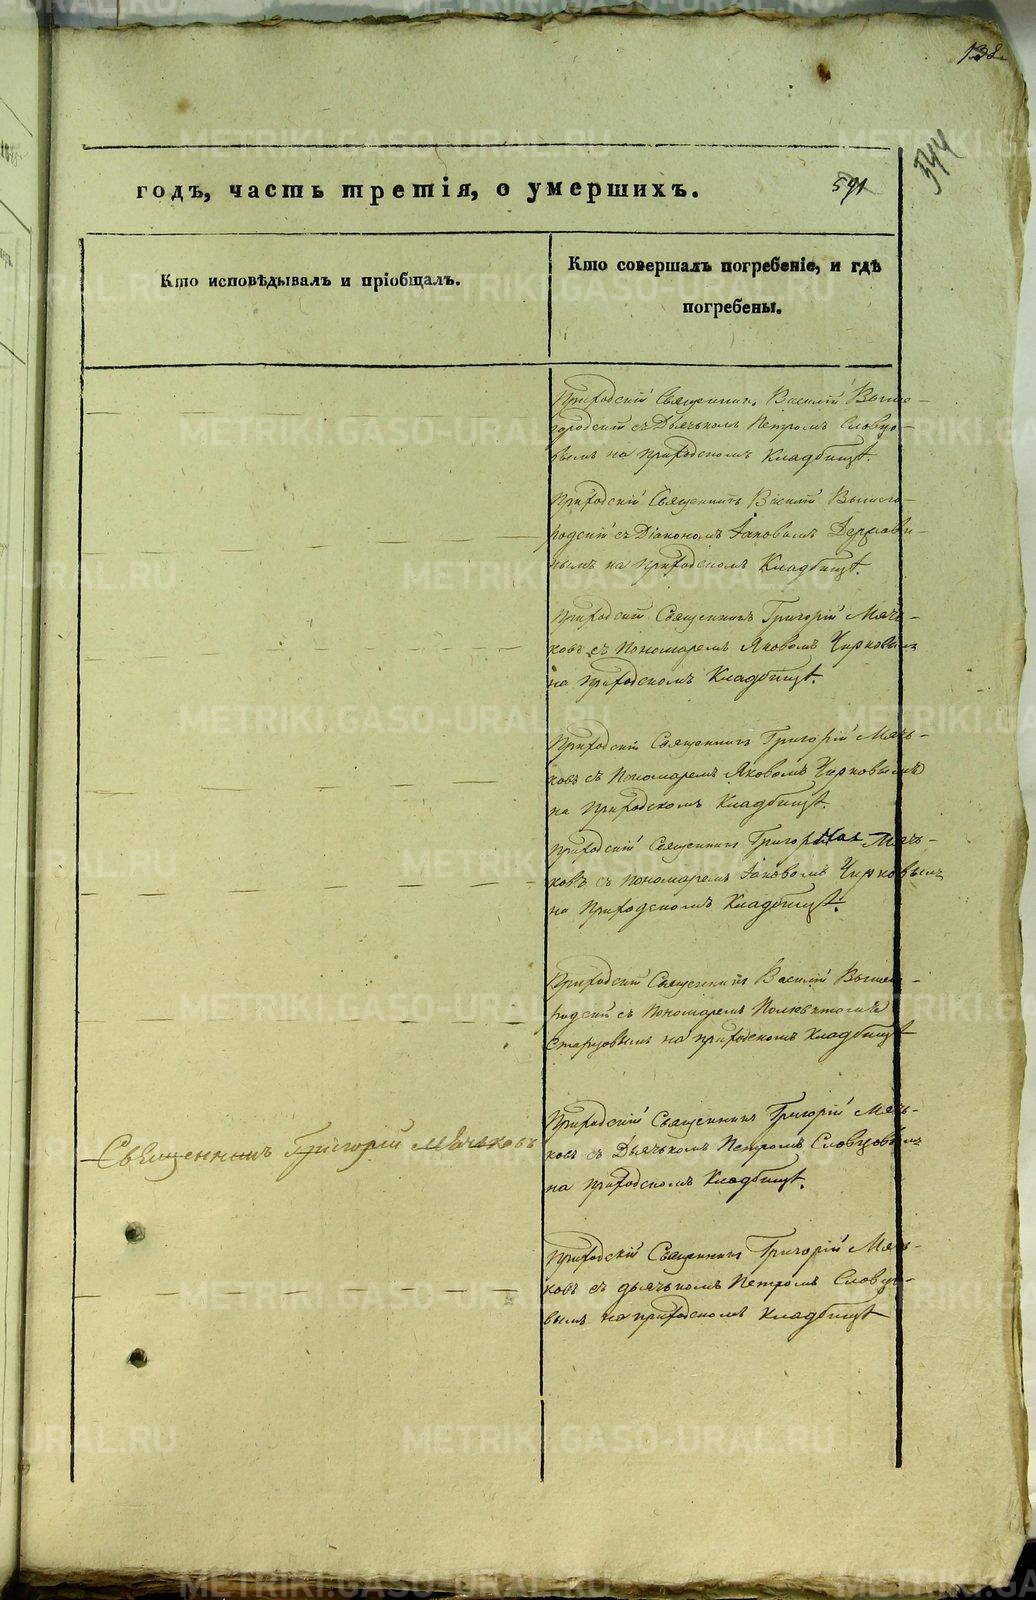 138
544
годъ, часть третія, о умершихъ.
591
Кто исповѣдывалъ и пріобщалъ.
Кто совершалъ погребеніе, и гдѣ
погребены.
Приходскій Священникъ Василій Вышего-
родскій съ Дьячькомъ Петромъ Словцо-
вымъ на приходскомъ Кладбищѣ.
Приходскій Священникъ Василій Вышего-
родскій съ Діакономъ Іаковомъ Держави-
нымъ на приходскомъ Кладбищѣ.
Приходскій Священникъ Григорій Мячь-
ковъ съ Пономаремъ Яковомъ Чирковымъ
на приходскомъ Кладбищѣ.
Приходскій Священникъ Григорій Мячь-
ковъ съ Пономаремъ Яковомъ Чирковымъ
на Приходскомъ Кладбищѣ.
Приходскій Священникъ Мячь-
ковъ съ пономаремъ Іаковомъ Чирковымъ
на Приходскомъ Кладбищѣ.
Приходскій Священникъ Василій Вышего-
родскій съ Пономаремъ
Старцовымъ на приходскомъ Кладбищѣ
Священникъ Григорій Мячьковъ
Приходскій Священникъ Григорій Мячь-
ковъ съ Дьячькомъ Петромъ Словцовымъ
на приходскомъ Кладбищѣ.
Приходскій Священникъ Григорій Мячь-
ковъ съ дьячькомъ Петромъ Словцо-
вымъ на приходскомъ Кладбищѣ
METRIKI.GASO-URAL.RU